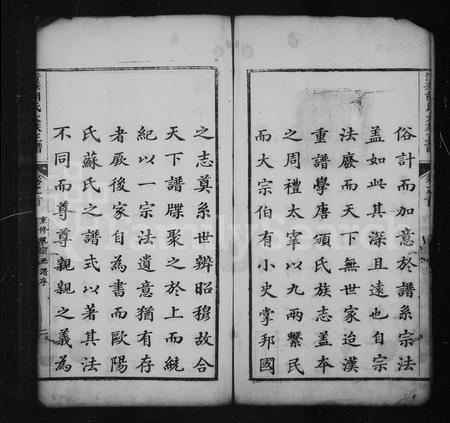 俗計而加意於譜系宗法
蓋如此其深且遠也自宗
法廢而天下無世家迨漢
重譜學唐頒氏族志蓋本
之周禮太宰以九兩繫民
而大宗伯有小史掌邦國
之志奠系世辨昭穆故合
天下譜牒聚之於上而統
紀以一宗法遺意猶有存
者厥後家自為書而歐陽
氏蘇氏之譜式以著其法
不同而尊尊親親之義為
重修
譜序
二